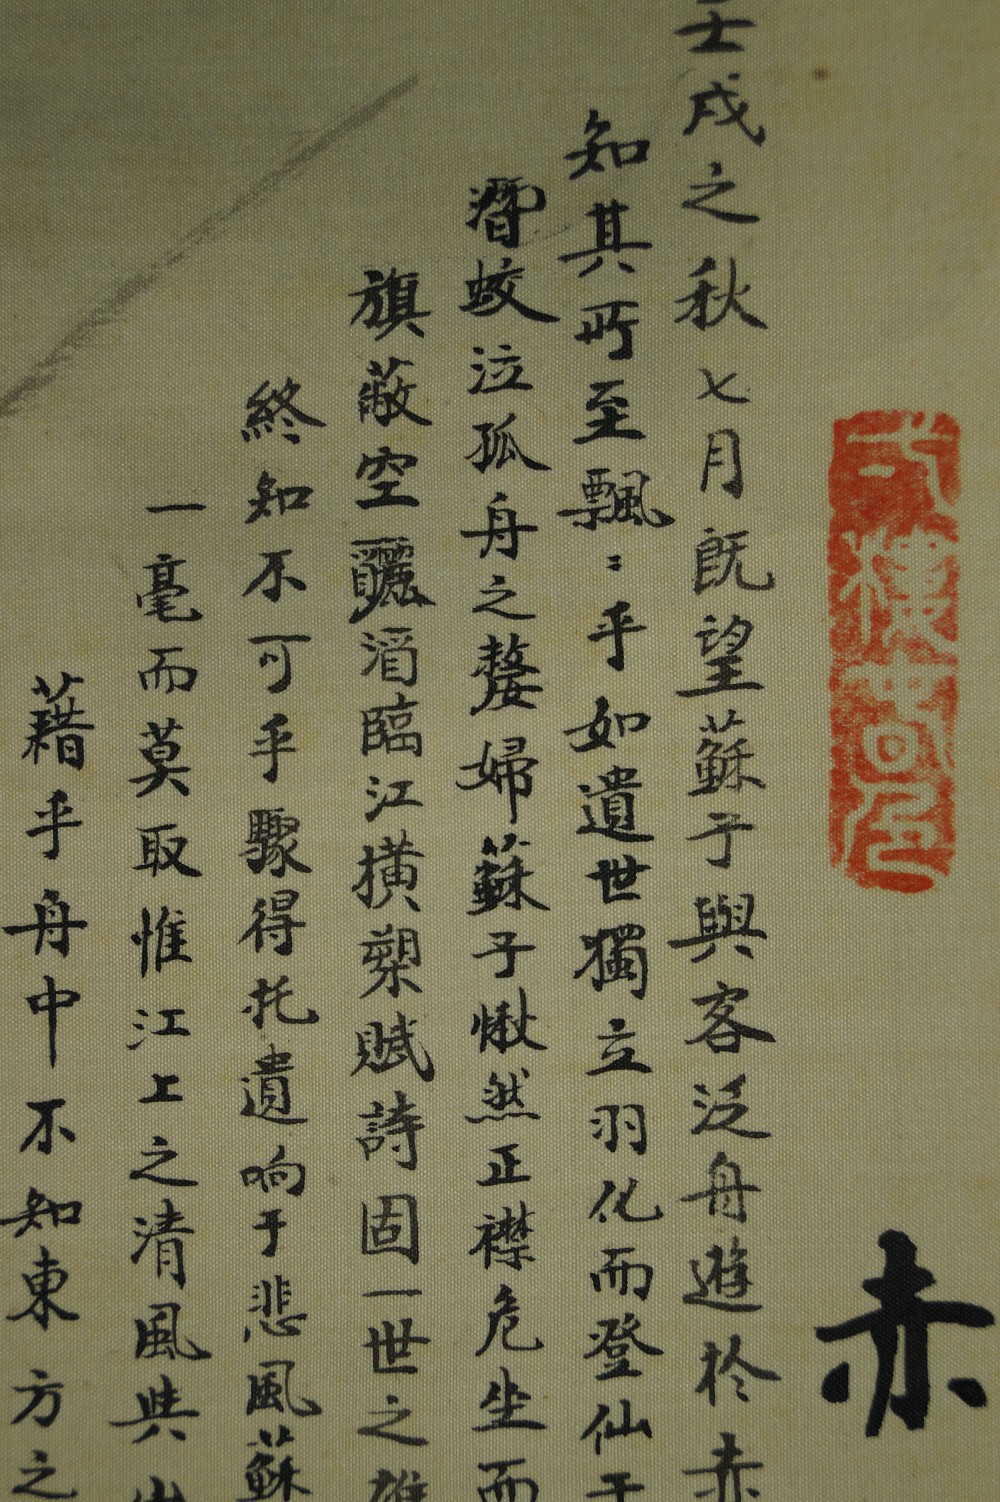 赤
壬戌之秋七月既望蘇子與客泛舟遊於赤
知其所至飄：乎如遺世獨立羽化而登仙于
潛蛟泣孤舟之嫠婦蘇子愀然正襟危坐而
旗蔽空釃酒臨江橫槊賦詩固一世之雄
終知不可乎驟得托遺响于悲風蘇
一毫而莫取惟江上之清風與山
藉乎舟中不知東方之